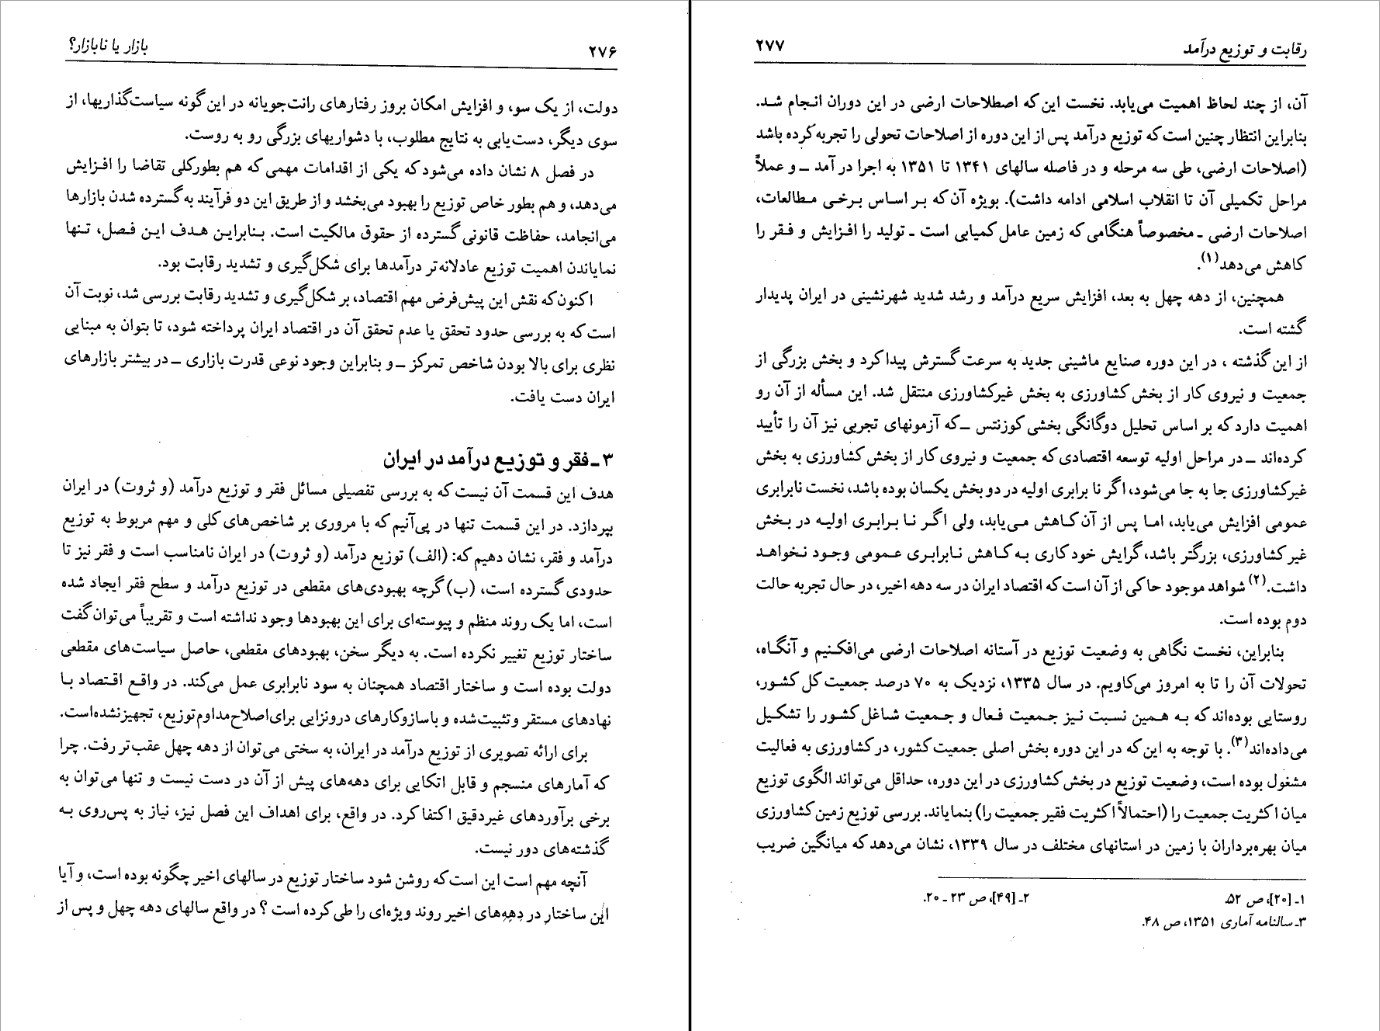 ۲۷۶
بازار یا نابازار؟
دولت، از یک سو، و افزایش امکان بروز رفتارهای رانت‌جویانه در این گونه سیاست‌گذاریها، از
سوی دیگر، دست‌یابی به نتایج مطلوب، با دشواریهای بزرگی رو به روست.
در فصل ۸ نشان داده می‌شود که یکی از اقدامات مهمی که هم بطورکلی تقاضا را افزایش
می‌دهد، و هم بطور خاص توزیع را بهبود می‌بخشد و از طریق این دو فرآیند به گسترده شدن بازارها
می‌انجامد، حفاظت قانونی گسترده از حقوق مالکیت است. بنابراین هدف این فصل، تنها
نمایاندن اهمیت توزیع عادلانه‌تر درآمدها برای شکل‌گیری و تشدید رقابت بود.
اکنون که نقش این پیش‌فرض مهم اقتصاد، بر شکل‌گیری و تشدید رقابت بررسی شد، نوبت آن
است که به بررسی حدود تحقق یا عدم تحقق آن در اقتصاد ایران پرداخته شود، تا بتوان به مبنایی
نظری برای بالا بودن شاخص تمرکز ــ و بنابراین وجود نوعی قدرت بازاری ــ در بیشتر بازارهای
ایران دست یافت.
۳ ـ فقر و توزیع درآمد در ایران
هدف این قسمت آن نیست که به بررسی تفصیلی مسائل فقر و توزیع درآمد (و ثروت) در ایران
بپردازد. در این قسمت تنها در پی‌آنیم که با مروری بر شاخص‌های کلی و مهم مربوط به توزیع
درآمد و فقر، نشان دهیم که: (الف) توزیع درآمد (و ثروت) در ایران نامناسب است و فقر نیز تا
حدودی گسترده است، (ب) گرچه بهبودی‌های مقطعی در توزیع درآمد و سطح فقر ایجاد شده
است، اما یک روند منظم و پیوسته‌ای برای این بهبودها وجود نداشته است و تقریباً می‌توان گفت
ساختار توزیع تغییر نکرده است. به دیگر سخن، بهبودهای مقطعی، حاصل سیاست‌های مقطعی
دولت بوده است و ساختار اقتصاد همچنان به سود نابرابری عمل می‌کند. در واقع اقتصاد با
نهادهای مستقر و تثبیت‌شده و با سازوکارهای درونزایی برای اصلاح مداوم توزیع، تجهیز نشده است.
برای ارائه تصویری از توزیع درآمد در ایران، به سختی می‌توان از دهه چهل عقب‌تر رفت. چرا
که آمارهای منسجم و قابل اتکایی برای دهه‌های پیش از آن در دست نیست و تنها می‌توان به
برخی برآوردهای غیردقیق اکتفا کرد. در واقع، برای اهداف این فصل نیز، نیاز به پس‌روی به
گذشته‌های دور نیست.
آنچه مهم است این است که روشن شود ساختار توزیع در سالهای اخیر چگونه بوده است، و آیا
این ساختار در دهه‌های اخیر روند ویژه‌ای را طی کرده است ؟ در واقع سالهای دهه چهل و پس از
رقابت و توزیع درآمد
۲۷۷
آن، از چند لحاظ اهمیت می‌یابد. نخست این که اصطلاحات ارضی در این دوران انجام شد.
بنابراین انتظار چنین است که توزیع درآمد پس از این دوره از اصلاحات تحولی را تجربه کرده باشد
(اصلاحات ارضی، طی سه مرحله و در فاصله سالهای ۱۳۴۱ تا ۱۳۵۱ به اجرا در آمد ــ و عملاً
مراحل تکمیلی آن تا انقلاب اسلامی ادامه داشت). بویژه آن که بر اساس برخی مطالعات،
اصلاحات ارضی ـ مخصوصاً هنگامی که زمین عامل کمیابی است ـ تولید را افزایش و فقر را
کاهش می‌دهد(۱).
همچنین، از دهه چهل به بعد، افزایش سریع درآمد و رشد شدید شهرنشینی در ایران پدیدار
گشته است.
از این گذشته ، در این دوره صنایع ماشینی جدید به سرعت گسترش پیدا کرد و بخش بزرگی از
جمعیت و نیروی کار از بخش کشاورزی به بخش غیرکشاورزی منتقل شد. این مسأله از آن رو
اهمیت دارد که بر اساس تحلیل دوگانگی بخشی کوزنتس ــ که آزمونهای تجربی نیز آن را تأیید
کرده‌اند ــ در مراحل اولیه توسعه اقتصادی که جمعیت و نیروی کار از بخش کشاورزی به بخش
غیرکشاورزی جا به جا می‌شود، اگر نا برابری اولیه در دو بخش یکسان بوده باشد، نخست نابرابری
عمومی افزایش می‌یابد، اما پس از آن کاهش می‌یابد، ولی اگر نا برابری اولیه در بخش
غیر کشاورزی، بزرگتر باشد، گرایش خود کاری به کاهش نابرابری عمومی وجود نخواهد
داشت.(۲) شواهد موجود حاکی از آن است که اقتصاد ایران در سه دهه اخیر، در حال تجربه حالت
دوم بوده است.
بنابراین، نخست نگاهی به وضعیت توزیع در آستانه اصلاحات ارضی می‌افکنیم و آنگاه،
تحولات آن را تا به امروز می‌کاویم. در سال ۱۳۳۵، نزدیک به ۷۰ درصد جمعیت کل کشور،
روستایی بوده‌اند که به همین نسبت نیز جمعیت فعال و جمعیت شاغل کشور را تشکیل
می‌داده‌اند(۳). با توجه به این که در این دوره بخش اصلی جمعیت کشور، در کشاورزی به فعالیت
مشغول بوده است، وضعیت توزیع در بخش کشاورزی در این دوره، حداقل می‌تواند الگوی توزیع
میان اکثریت جمعیت را (احتمالاً اکثریت فقیر جمعیت را) بنمایاند. بررسی توزیع زمین کشاورزی
میان بهره‌برداران با زمین در استانهای مختلف در سال ۱۳۳۹، نشان می‌دهد که میانگین ضریب
۱ـ [۲۰]، ص ۵۲.
۲ـ [۴۹]، ص ۲۳ ـ ۲۰.
۳ـ سالنامه آماری ۱۳۵۱، ص ۴۸.